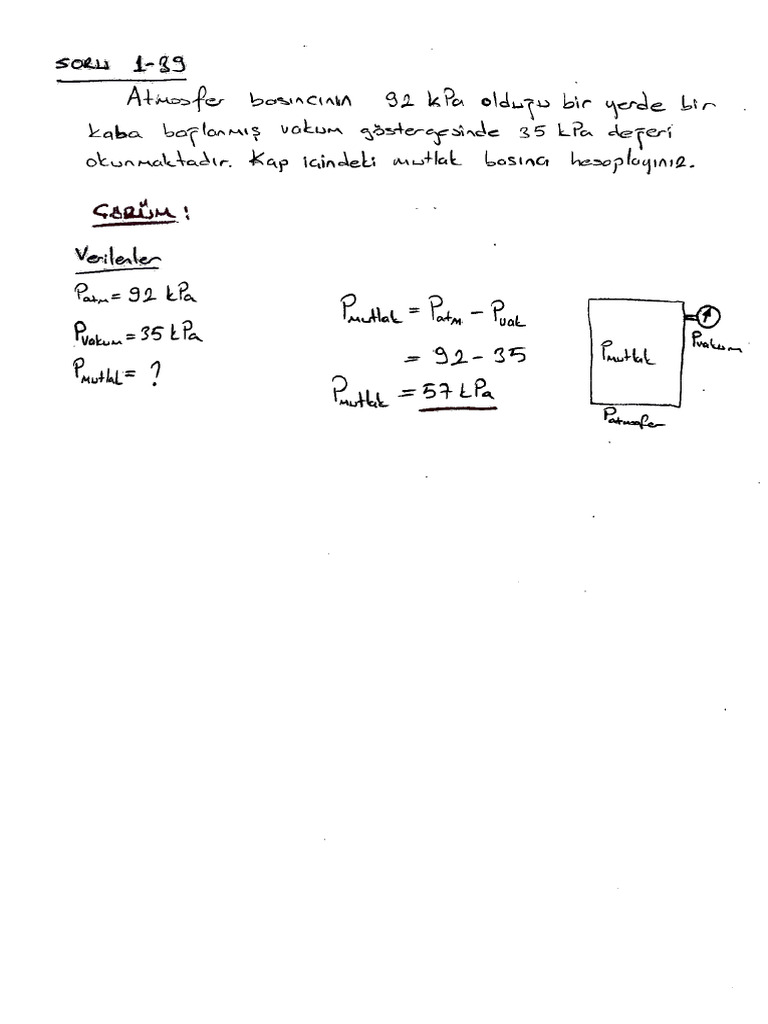 SORU 1-39
Atmosfer basıncının 92 kPa olduğu bir yerde bir
kaba bağlanmış vakum göstergesinde 35 kPa değeri
okunmaktadır. Kap içindeki mutlak basıncı hesaplayınız.
ÇÖZÜM :
Verilenler
Patm = 92 kPa
Pvakum = 35 kPa
Pmutlak = ?
Pmutlak = Patm - Pvak
= 92 - 35
Pmutlak = 57 kPa
Pmutlak
Pvakum
Patmosfer